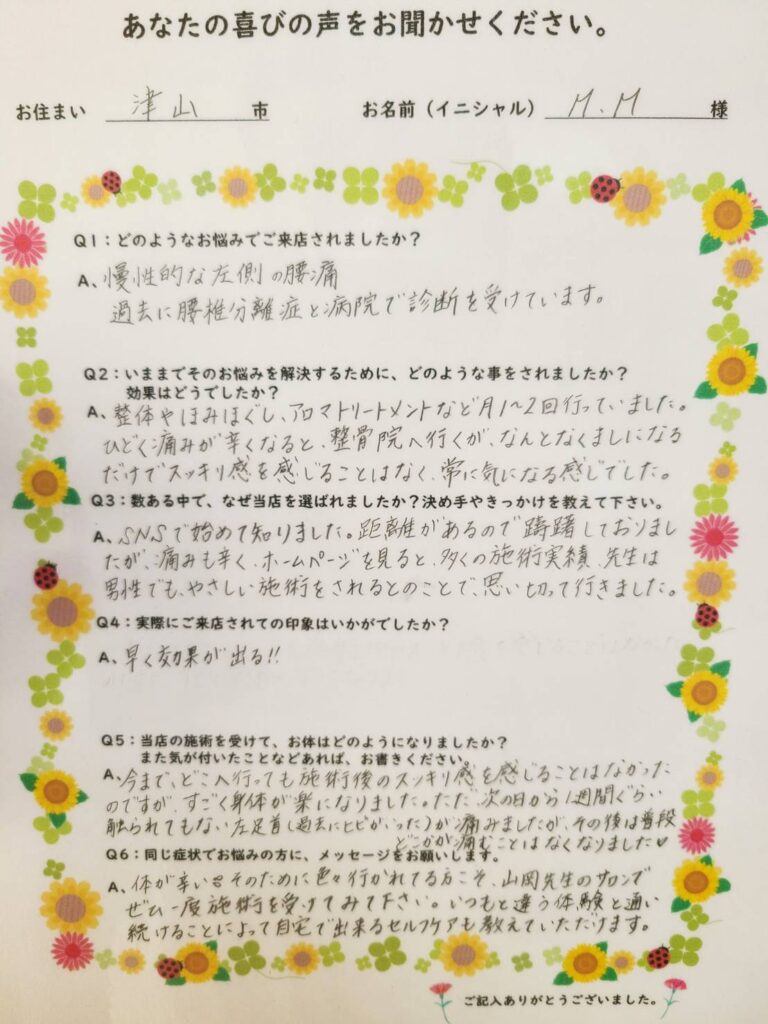 あなたの喜びの声をお聞かせください。
お住まい 津山 市 お名前（イニシャル） M.M 様
Q1：どのようなお悩みでご来店されましたか？
A、慢性的な左側の腰痛
過去に腰椎分離症と病院で診断を受けています。
Q2：いままでそのお悩みを解決するために、どのような事をされましたか？
効果はどうでしたか？
A、整体やほみほぐし、アロマトリートメントなど月1〜2回行っていました。
ひどく痛みが辛くなると、整骨院へ行くが、なんとなくましになる
だけでスッキリ感を感じることはなく、常に気になる感じでした。
Q3：数ある中で、なぜ当店を選ばれましたか？決め手やきっかけを教えて下さい。
A、SNSで始めて知りました。距離があるので躊躇しておりまし
たが、痛みも辛く、ホームページを見ると、多くの施術実績、先生は
男性でも、やさしい施術をされるとのことで、思い切って行きました。
Q4：実際にご来店されての印象はいかがでしたか？
A、早く効果が出る!!
Q5：当店の施術を受けて、お体はどのようになりましたか？
また気が付いたことなどあれば、お書きください。
A、今まで、どこへ行っても施術後のスッキリ感を感じることはなかった
のですが、すごく身体が楽になりました。ただ、次の日から1週間ぐらい
触られてもない左足首(過去にヒビがいった)が痛みましたが、その後は普段
どこかが痛むことはなくなりました♡
Q6：同じ症状でお悩みの方に、メッセージをお願いします。
A、体が辛い。そのために色々行かれてる方こそ、山岡先生のサロンで
ぜひ一度施術を受けてみて下さい。いつもと違う体験と通い
続けることによって自宅で出来るセルフケアも教えていただけます。
ご記入ありがとうございました。